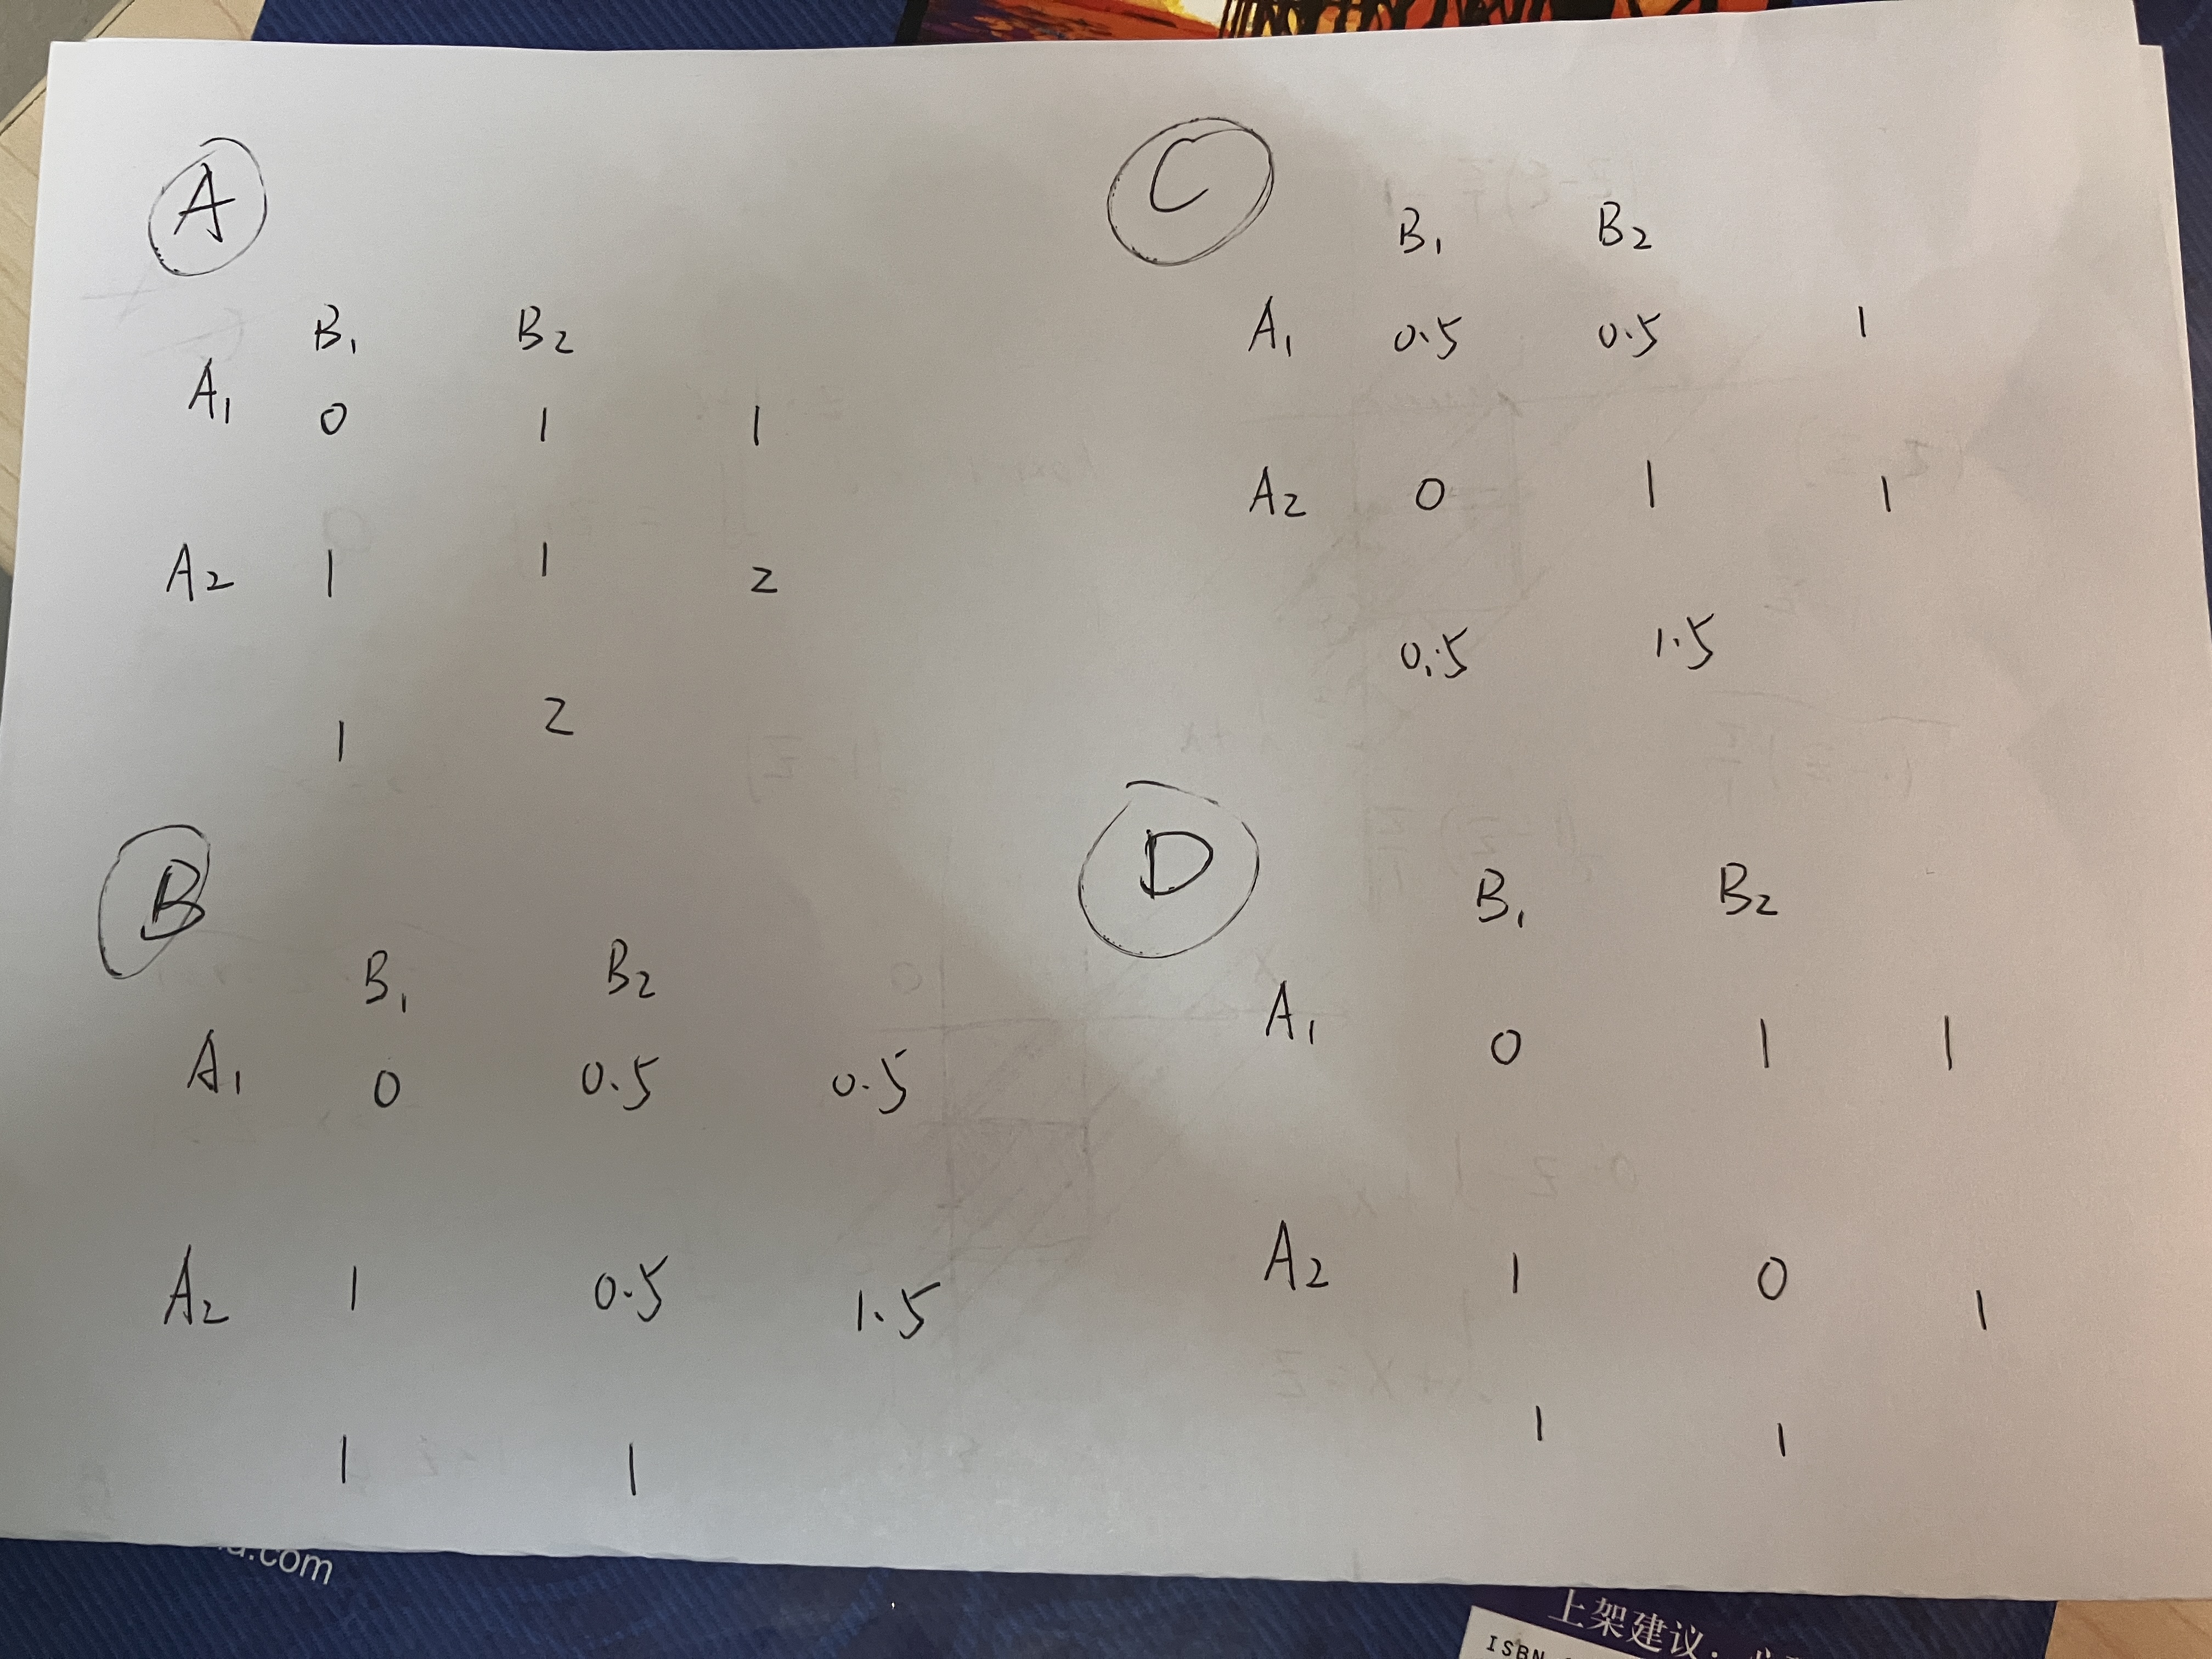 A
B₁ B₂
A₁ 0 1 1
A₂ 1 1 2
1 2
B
B₁ B₂
A₁ 0 0.5 0.5
A₂ 1 0.5 1.5
1 1
C
B₁ B₂
A₁ 0.5 0.5 1
A₂ 0 1 1
0.5 1.5
D
B₁ B₂
A₁ 0 1 1
A₂ 1 0 1
1 1
.com
上架建议:
ISBN